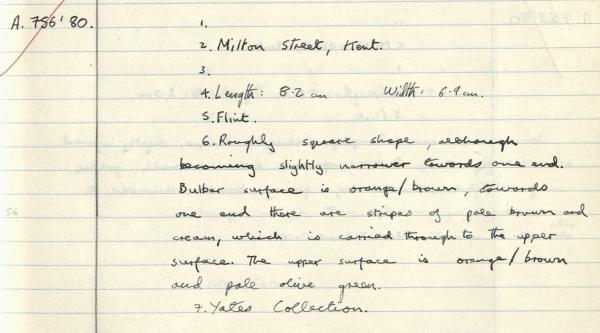 A. 756'80.
1.
2. Milton Street, Kent.
3.
4. Length: 8.2 cm Width: 6.9 cm.
5. Flint.
6. Roughly square shape, although
becoming slightly narrower towards one end.
Bulbar surface is orange/brown, towards
one end there are stripes of pale brown and
cream, which is carried through to the upper
surface. The upper surface is orange/brown
and pale olive green.
7. Yates Collection.